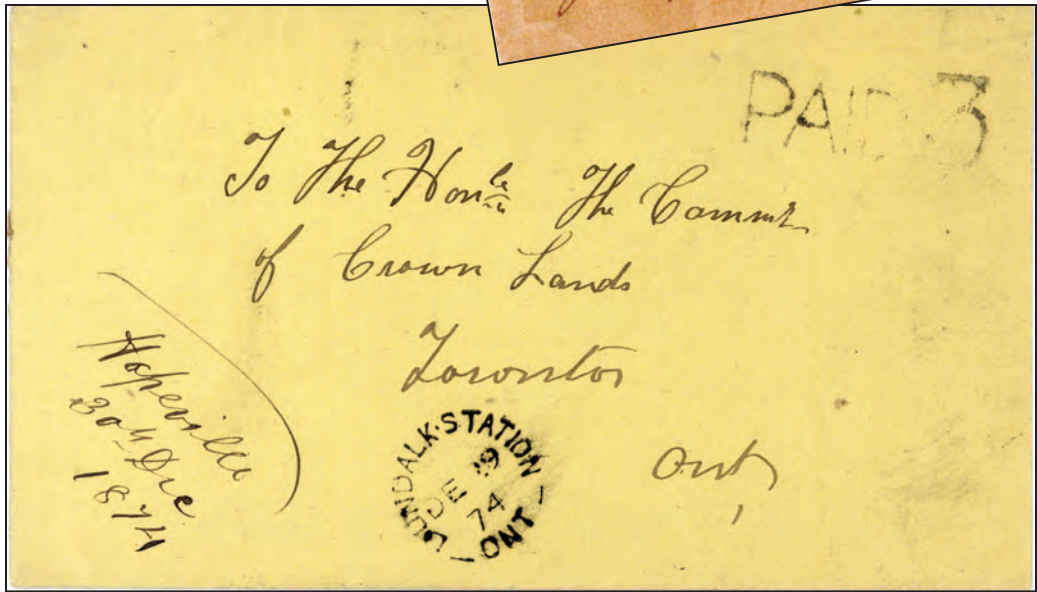 PAID 3
To The Honble The Commr
of Crown Lands
Toronto
Ont
Hopeville
30th Dec
1874
DUNDALK·STATION
DE 29
74
ONT